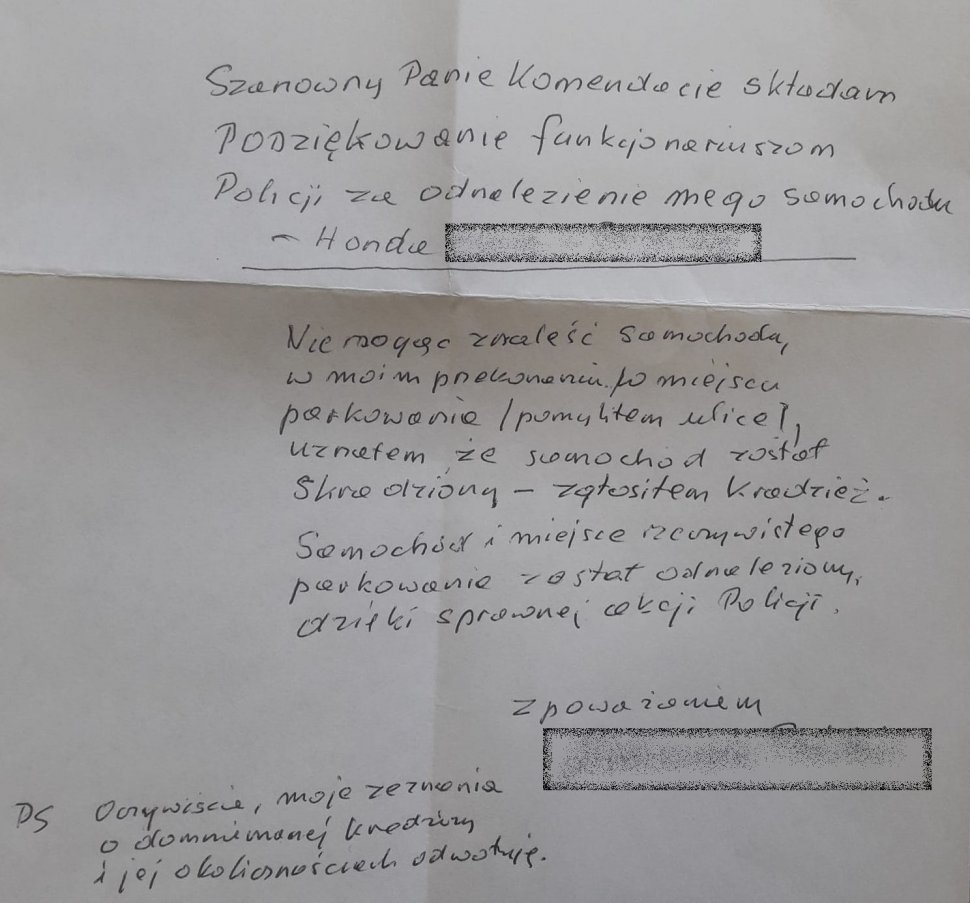 Szanowny Panie Komendacie składam
Podziękowanie funkcjonariuszom
Policji za odnalezienie mego samochodu
- Honda
Nie mogąc znaleść samochodu,
w moim przekonaniu, w miejscu
parkowania /pomyliłem ulice/,
uznałem że samochód został
skradziony - zgłosiłem kradzież.
Samochód i miejsce rzeczywistego
parkowania został odnaleziony,
dzięki sprawnej akcji Policji.
Z poważaniem
PS Oczywiście, moje zeznania
o domniemanej kradzieży
i jej okolicznościach odwołuję.